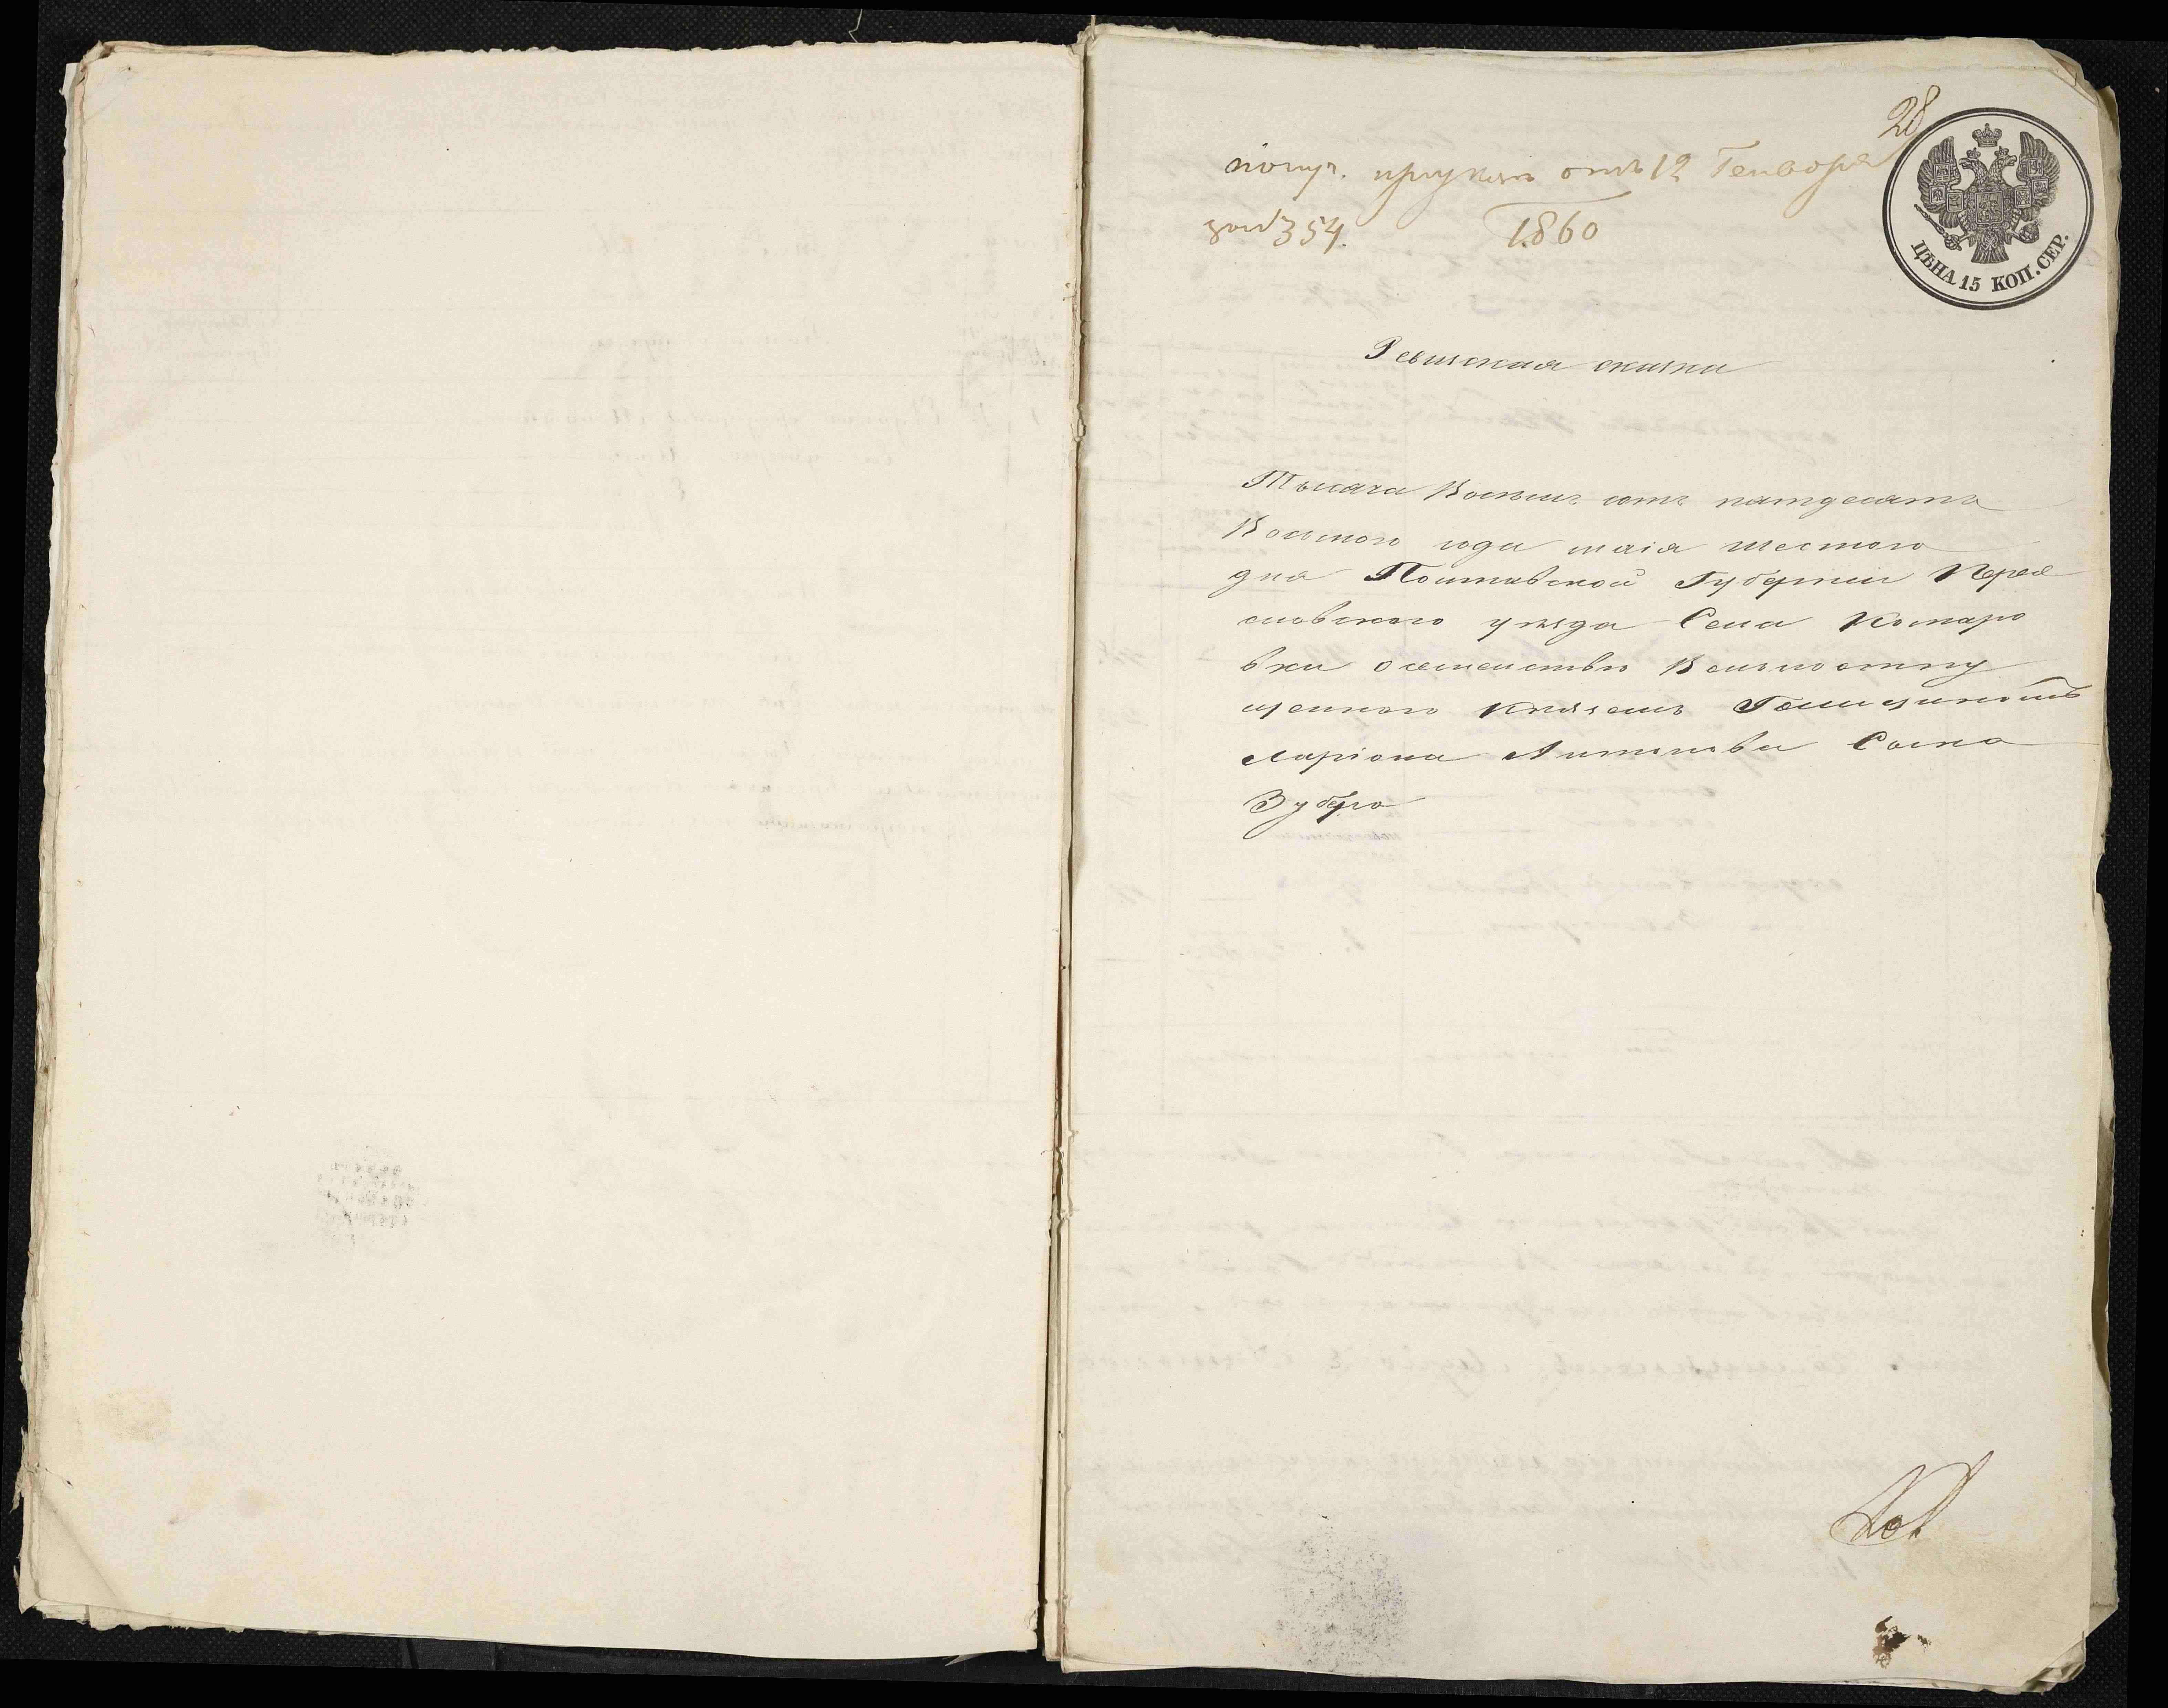 28
получ. при указѣ отъ 12 Генворя
за № 354. 1860
ЦѢНА 15 КОП. СЕР.
Ревизская сказка
Тысяча Восемъ сотъ пятдесятъ
Восьмого года маія шестого
дня Полтавской Губерніи Перея
славского уѣзда Села Комаро
вки о семействѣ Вольноотпу
щенного Княземъ Голицинымъ
Ларіона Антонова Сына
Зубро